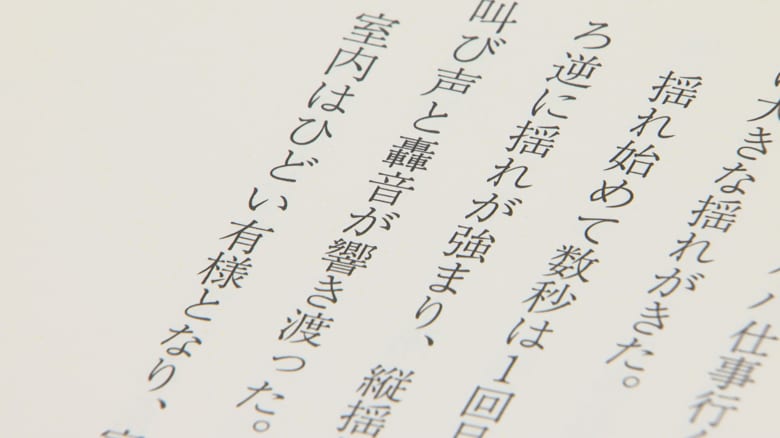 仕事行
大きな揺れがきた。
揺れ始めて数秒は1回目
ろ逆に揺れが強まり、縦揺
叫び声と轟音が響き渡った。
室内はひどい有様となり、